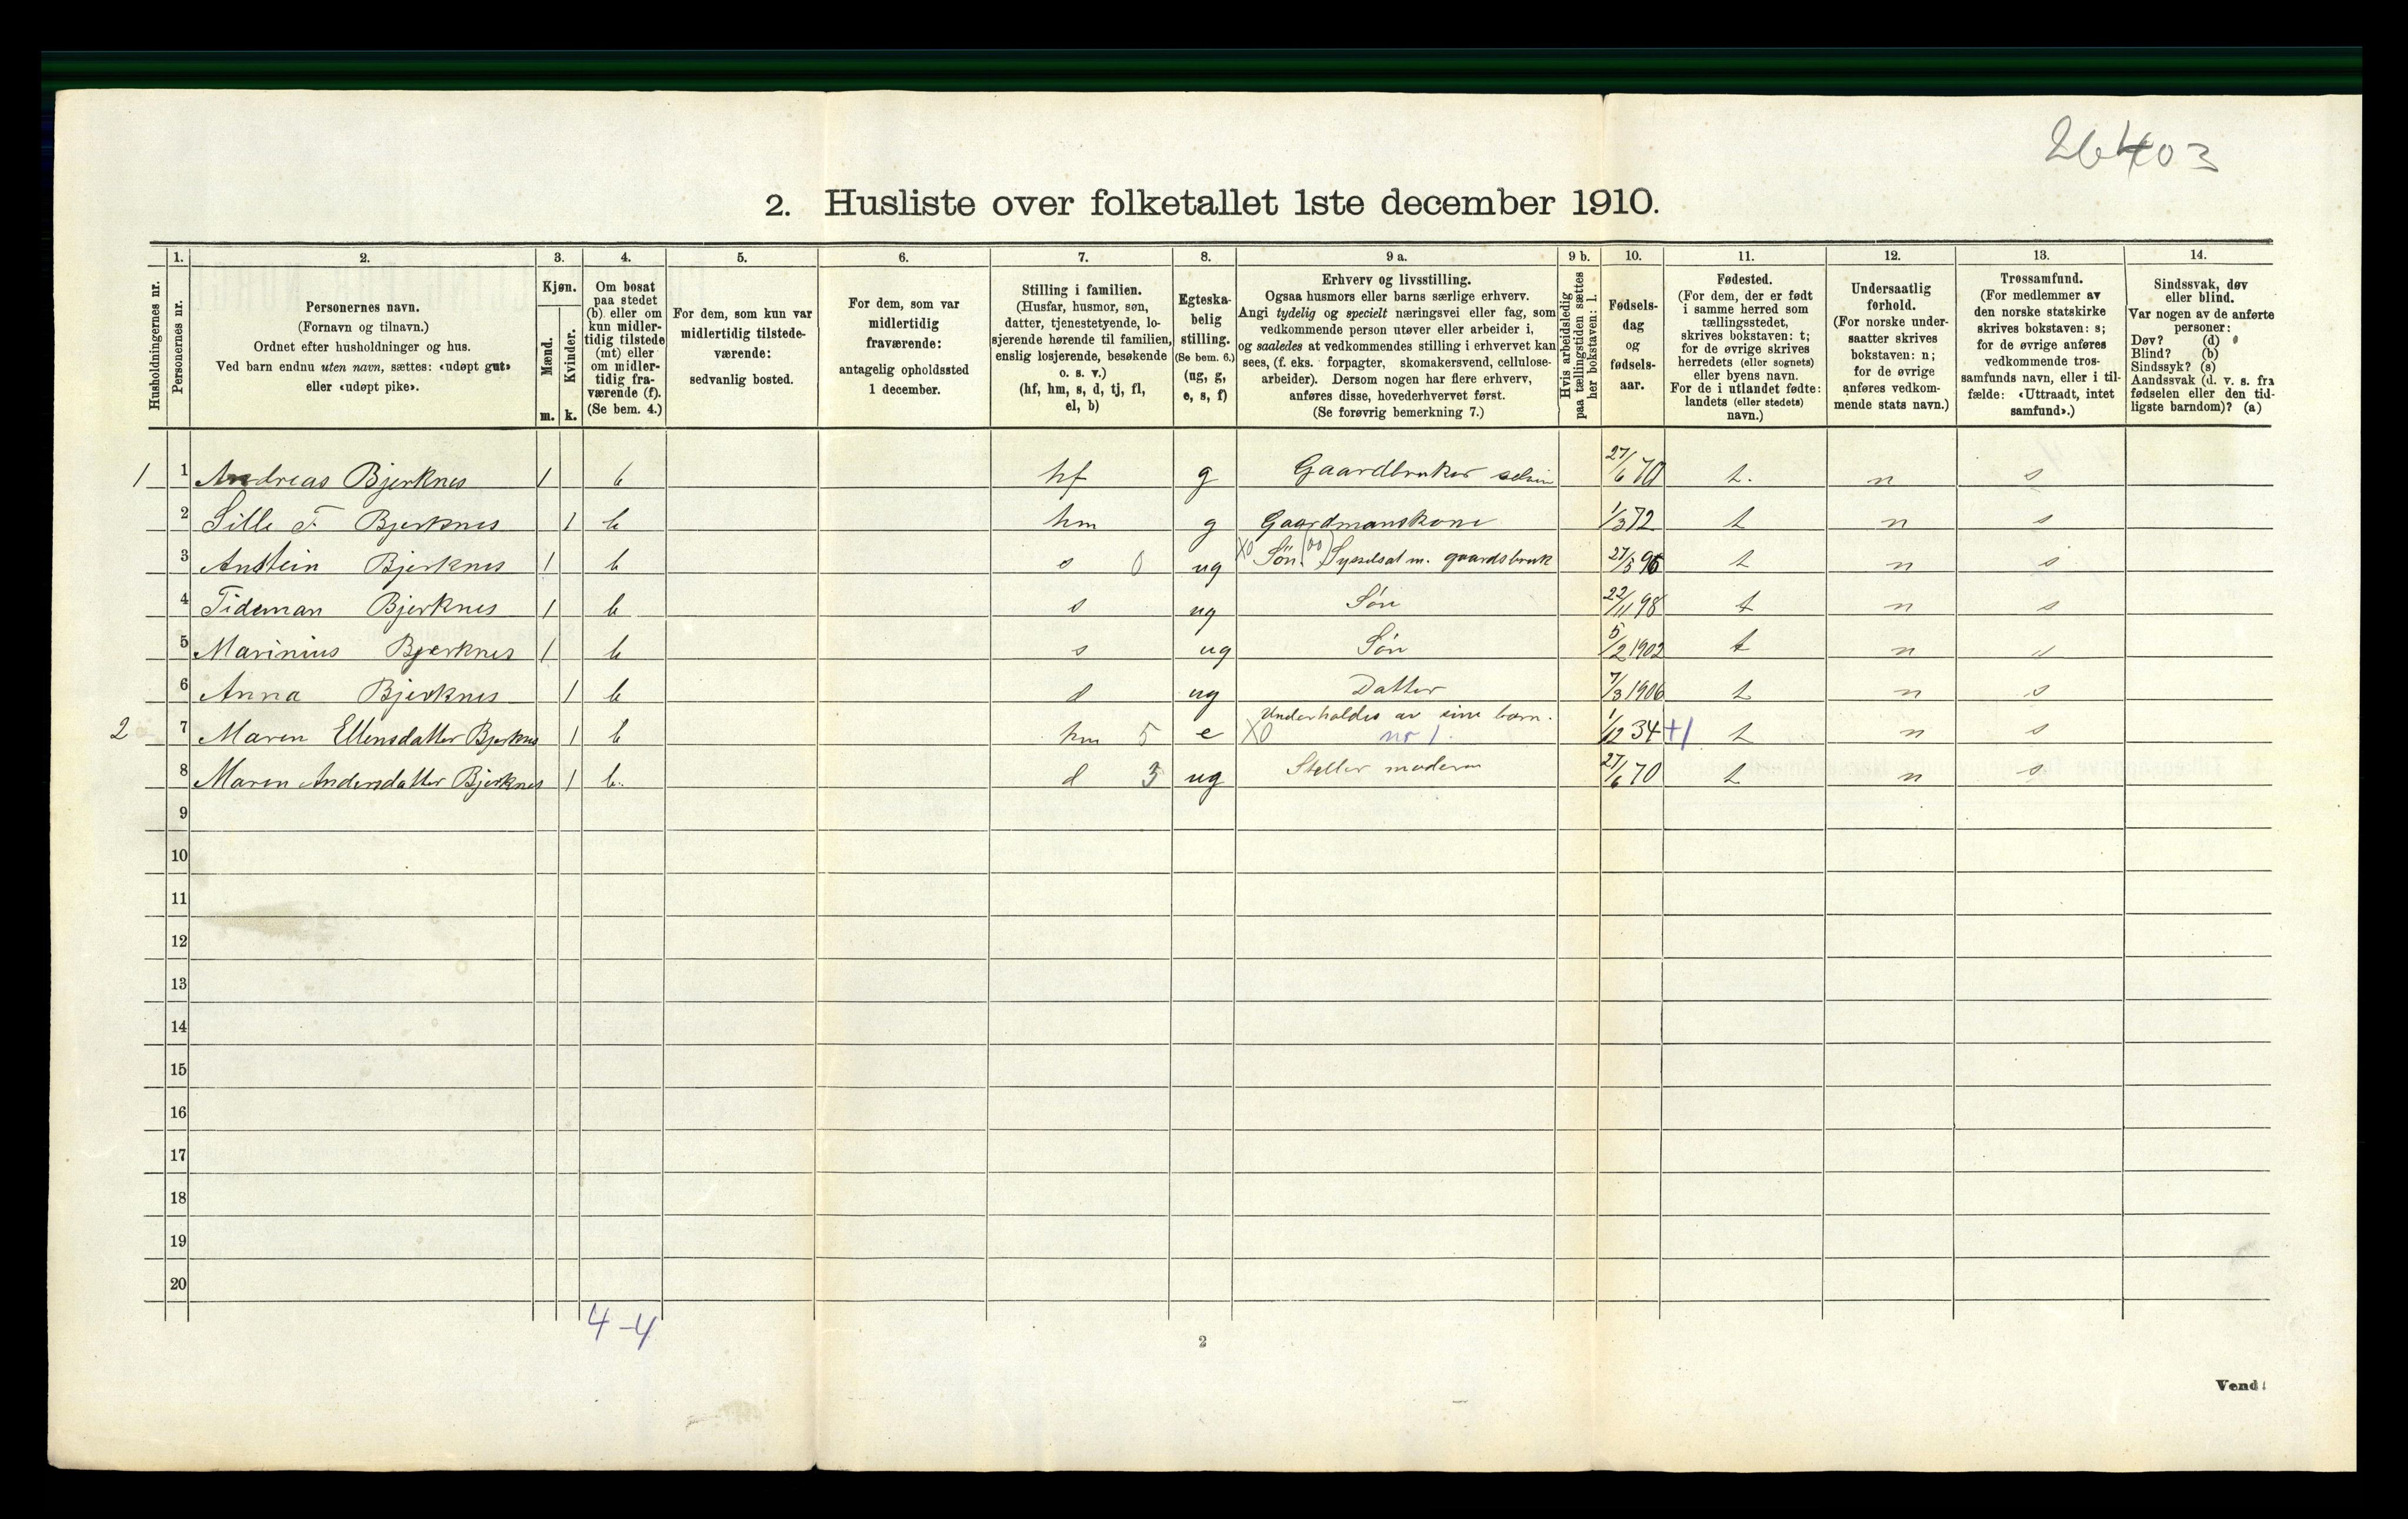 26403
2. Husliste over folketallet 1ste december 1910.
Husholdningernes nr.
1.
Personernes nr.
2.
Personernes navn.
(Fornavn og tilnavn.)
Ordnet efter husholdninger og hus.
Ved barn endnu uten navn, sættes: «udøpt gut»
eller «udøpt pike».
3.
Kjøn.
Mænd.
m.
Kvinder.
k.
4.
Om bosat
paa stedet
(b) eller om
kun midler-
tidig tilstede
(mt) eller
om midler-
tidig fra-
værende (f).
(Se bem. 4.)
5.
For dem, som kun var
midlertidig tilstede-
værende:
sedvanlig bosted.
6.
For dem, som var
midlertidig
fraværende:
antagelig opholdssted
1 december.
7.
Stilling i familien.
(Husfar, husmor, søn,
datter, tjenestetyende, lo-
sjerende hørende til familien,
enslig losjerende, besøkende
o. s. v.)
(hf, hm, s, d, tj, fl,
el, b)
8.
Egteska-
belig
stilling.
(Se bem. 6.)
(ug, g,
e, s, f)
9 a.
Erhverv og livsstilling.
Ogsaa husmors eller barns særlige erhverv.
Angi tydelig og specielt næringsvei eller fag, som
vedkommende person utøver eller arbeider i,
og saaledes at vedkommendes stilling i erhvervet kan
sees, (f. eks. forpagter, skomakersvend, cellulose-
arbeider). Dersom nogen har flere erhverv,
anføres disse, hovederhvervet først.
(Se forøvrig bemerkning 7.)
9 b.
Hvis arbeidsledig
paa tællingstiden sættes
her bokstaven: l.
10.
Fødsels-
dag
og
fødsels-
aar.
11.
Fødested.
(For dem, der er født
i samme herred som
tællingsstedet,
skrives bokstaven: t;
for de øvrige skrives
herredets (eller sognets)
eller byens navn.
For de i utlandet fødte:
landets (eller stedets)
navn.)
12.
Undersaatlig
forhold.
(For norske under-
saatter skrives
bokstaven: n;
for de øvrige
anføres vedkom-
mende stats navn.)
13.
Trossamfund.
(For medlemmer av
den norske statskirke
skrives bokstaven: s;
for de øvrige anføres
vedkommende tros-
samfunds navn, eller i til-
fælde: «Uttraadt, intet
samfund».)
14.
Sindssvak, døv
eller blind.
Var nogen av de anførte
personer:
Døv? (d)
Blind? (b)
Sindssyk? (s)
Aandssvak (d. v. s. fra
fødselen eller den tid-
ligste barndom)? (a)
1 1 Andreas Bjerknes 1 b hf g Gaardbruker selvei 27/6 70 t. n s
2 Sille F Bjerknes 1 b hm g Gaardmanskone 1/3 72 t n s
3 Anstein Bjerknes 1 b s 0 ug X0 Søn. (00) Sysselsat m. gaardsbruk 27/3 96 t n s
4 Tideman Bjerknes 1 b s ug Søn 22/11 98 t n s
5 Marinius Bjerknes 1 b s ug Søn 5/2 1902 t n s
6 Anna Bjerknes 1 b d ug Datter 7/3 1906 t n s
2 7 Maren Ellensdatter Bjerknes 1 b hm 5 e X0 Underholdes av sine barn. nr 1. 1/12 34 +1 t n s
8 Maren Andersdatter Bjerknes 1 b. d 3 ug Steller moderen 27/6 70 t n s
9
10
11
12
13
14
15
16
17
18
19
20
4-4
2
Vend!